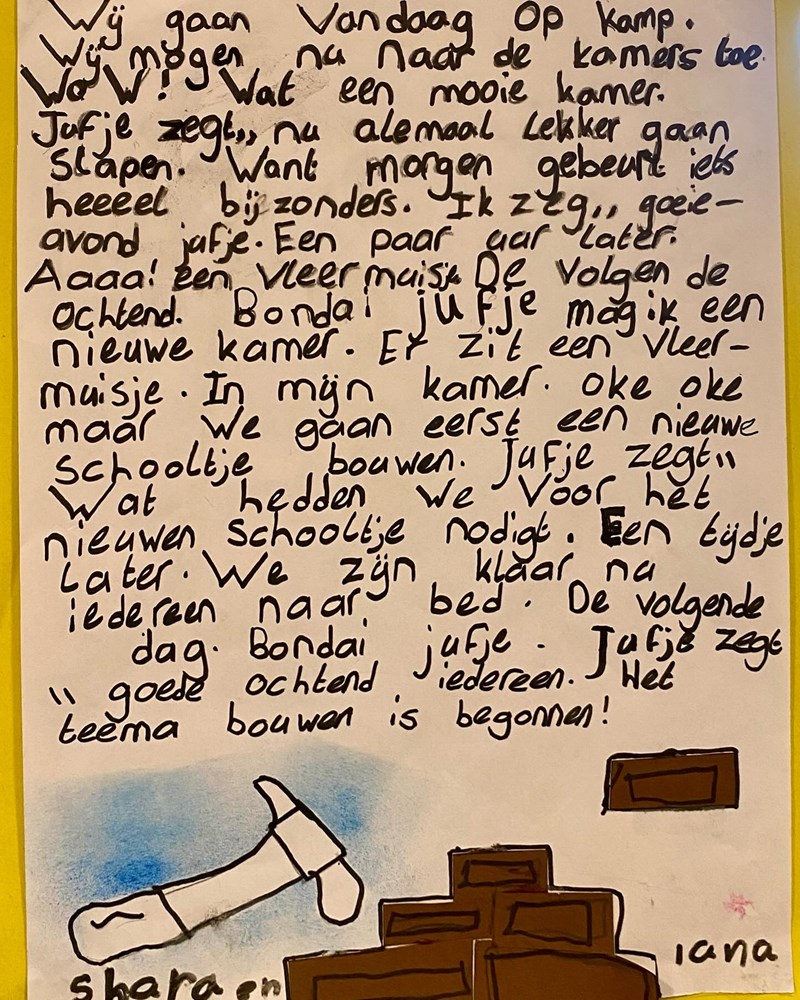 Wij gaan Vandaag Op kamp.
Wij mogen nu naar de kamers toe.
WoW! Wat een mooie kamer.
Jufje zegt,, nu alemaal Lekker gaan
Slapen. Want morgen gebeurt iets
heeeel bijzonders. Ik zeg,, goeie-
avond jufje. Een paar uur Later.
Aaaa! een vleermuis. De volgen de
ochtend. Bondai jufje mag ik een
nieuwe kamer. Er zit een vleer-
muisje. In mijn kamer. oke oke
maar we gaan eerst een nieuwe
schooltje bouwen. Jufje zegt"
Wat hedden we Voor het
nieuwen schooltje nodigt. Een tijdje
Later. We zijn klaar nu
iedereen naar bed. De volgende
dag. Bondai jufje. Jufje zegt
" goede ochtend iedereen. Het
teema bouwen is begonnen!
shara en
iana